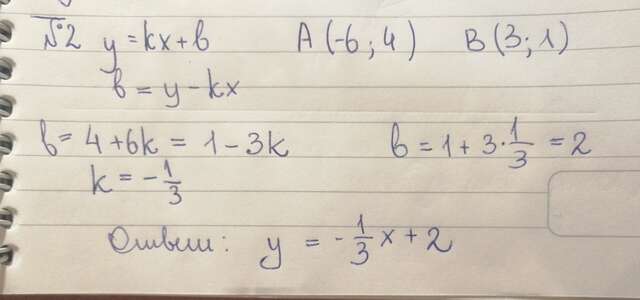 №2 y = kx + b A (-6; 4) B (3; 1)
b = y - kx
b = 4 + 6k = 1 - 3k b = 1 + 3 · 1/3 = 2
k = - 1/3
Ответ: y = - 1/3 x + 2